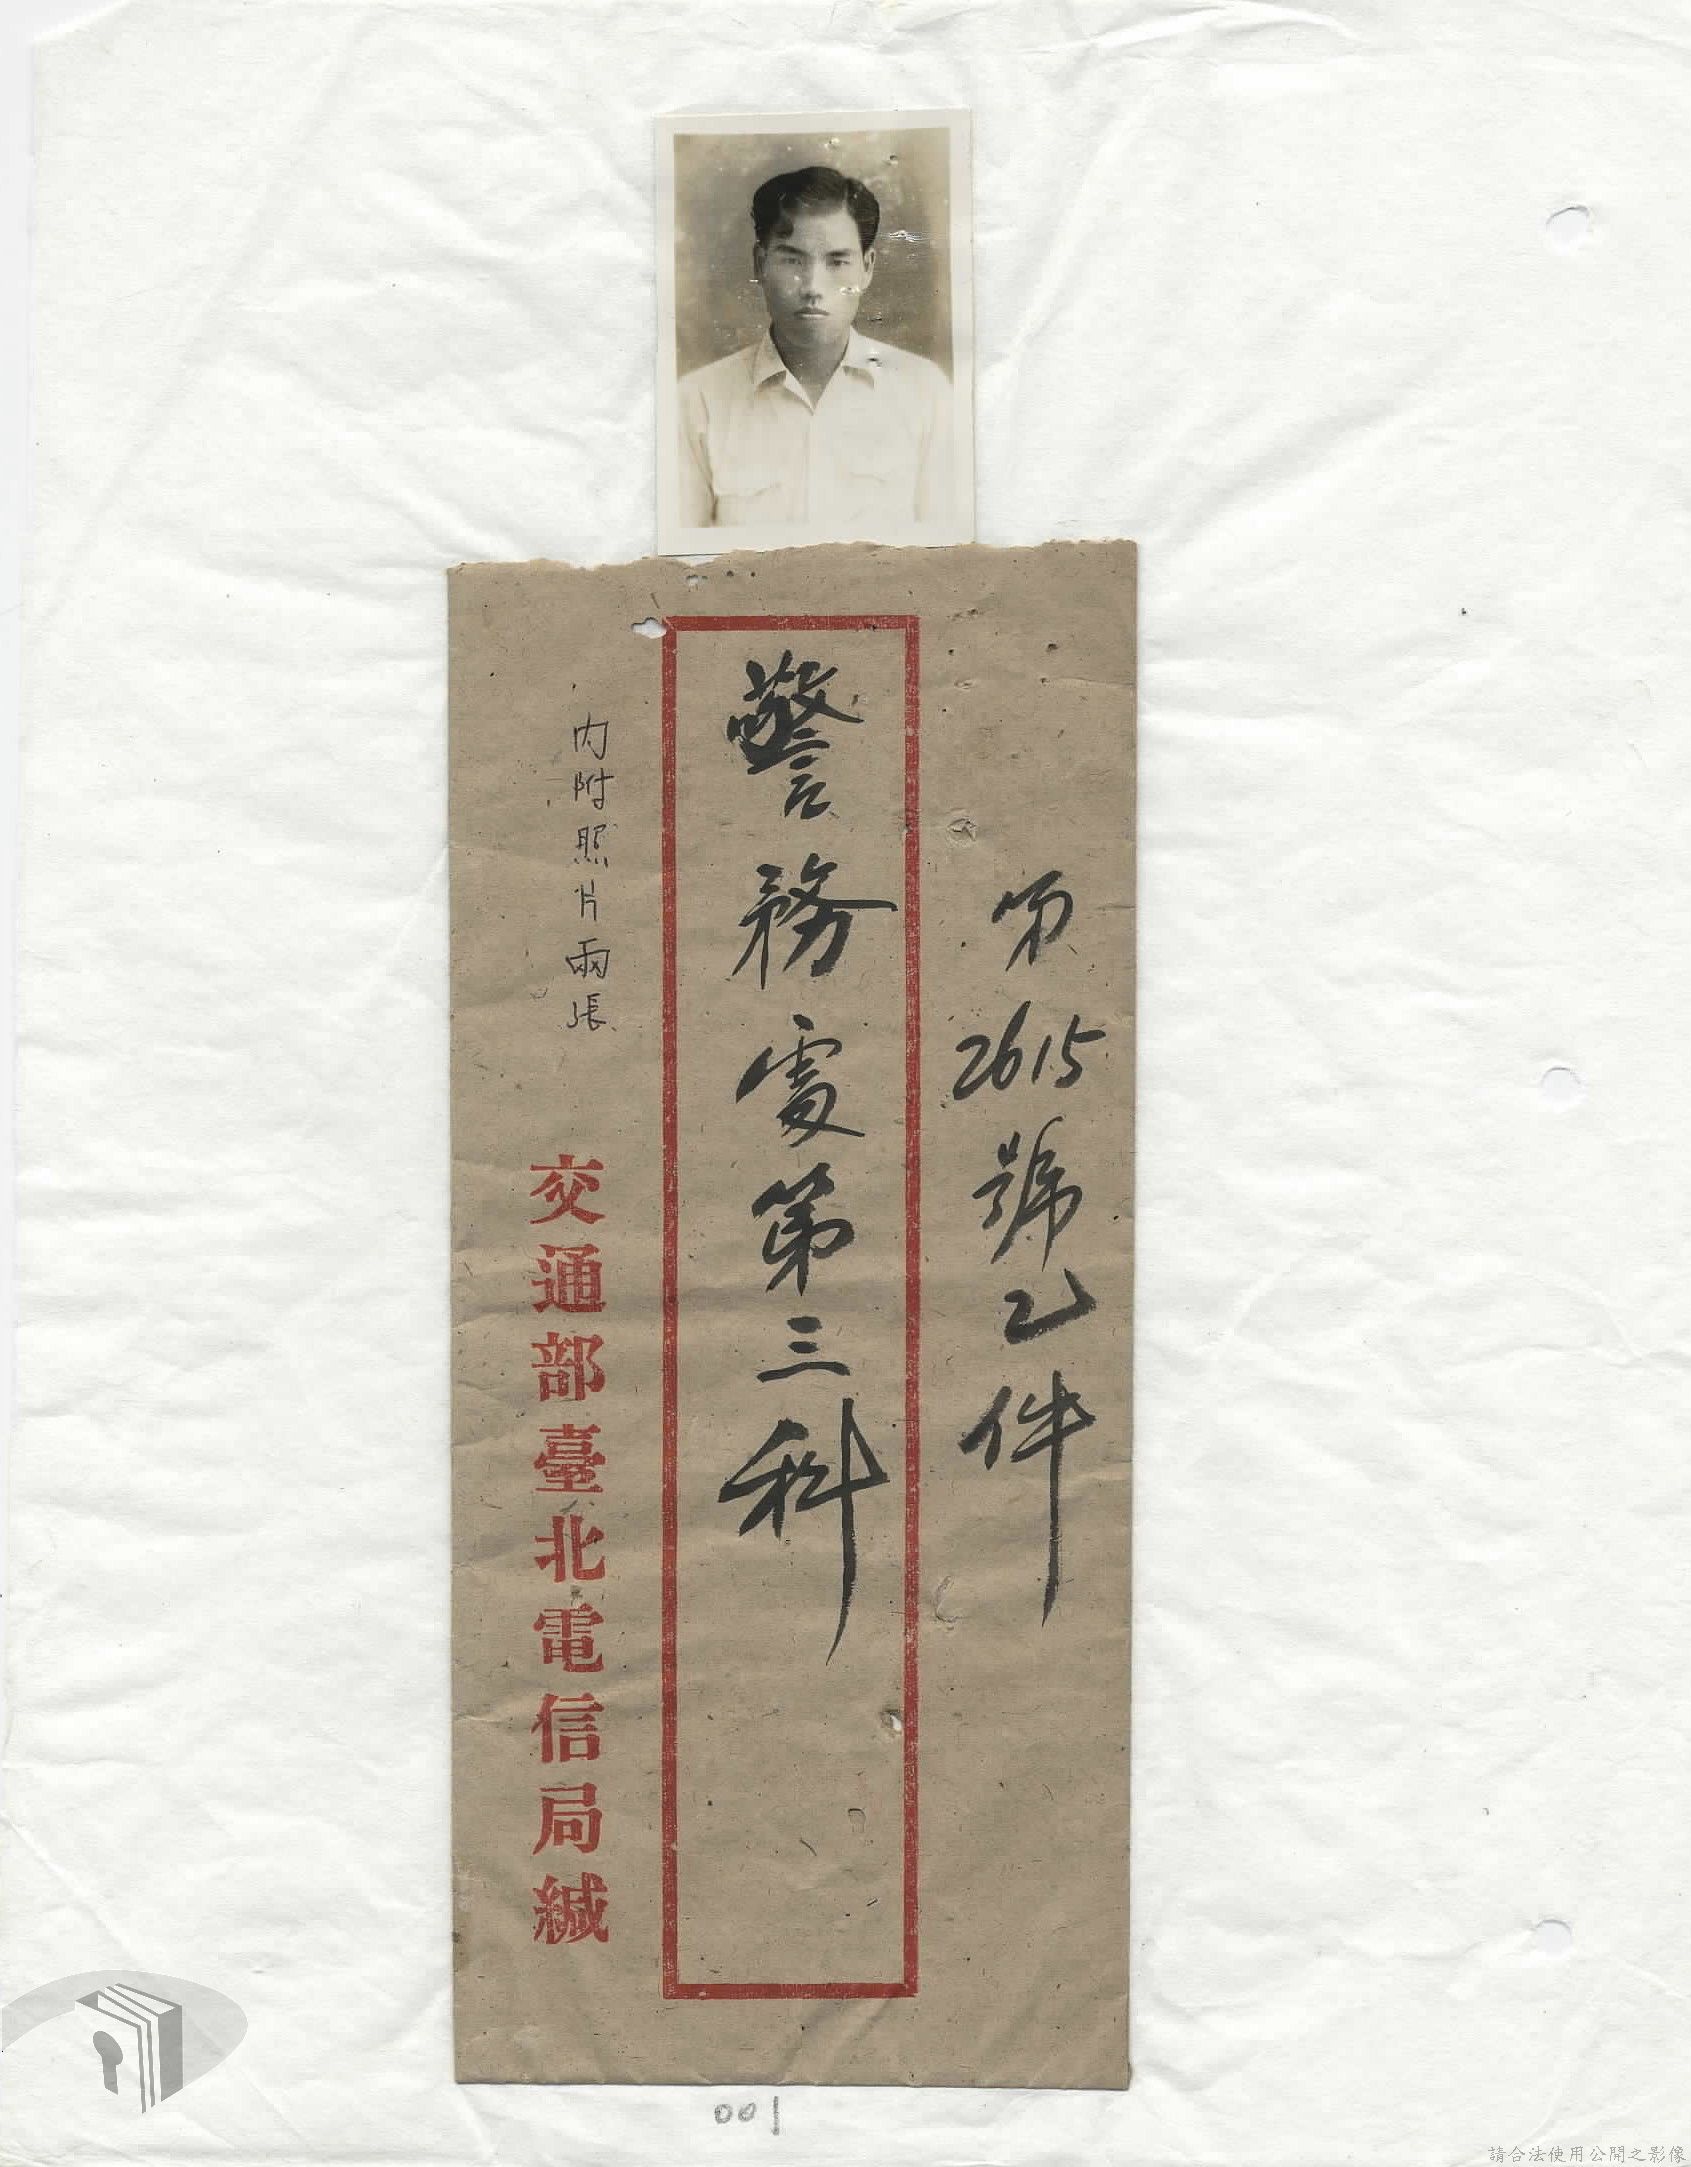 第2615號乙件
警務處第三科
內附照片兩張
交通部臺北電信局緘
001
請合法使用公開之影像